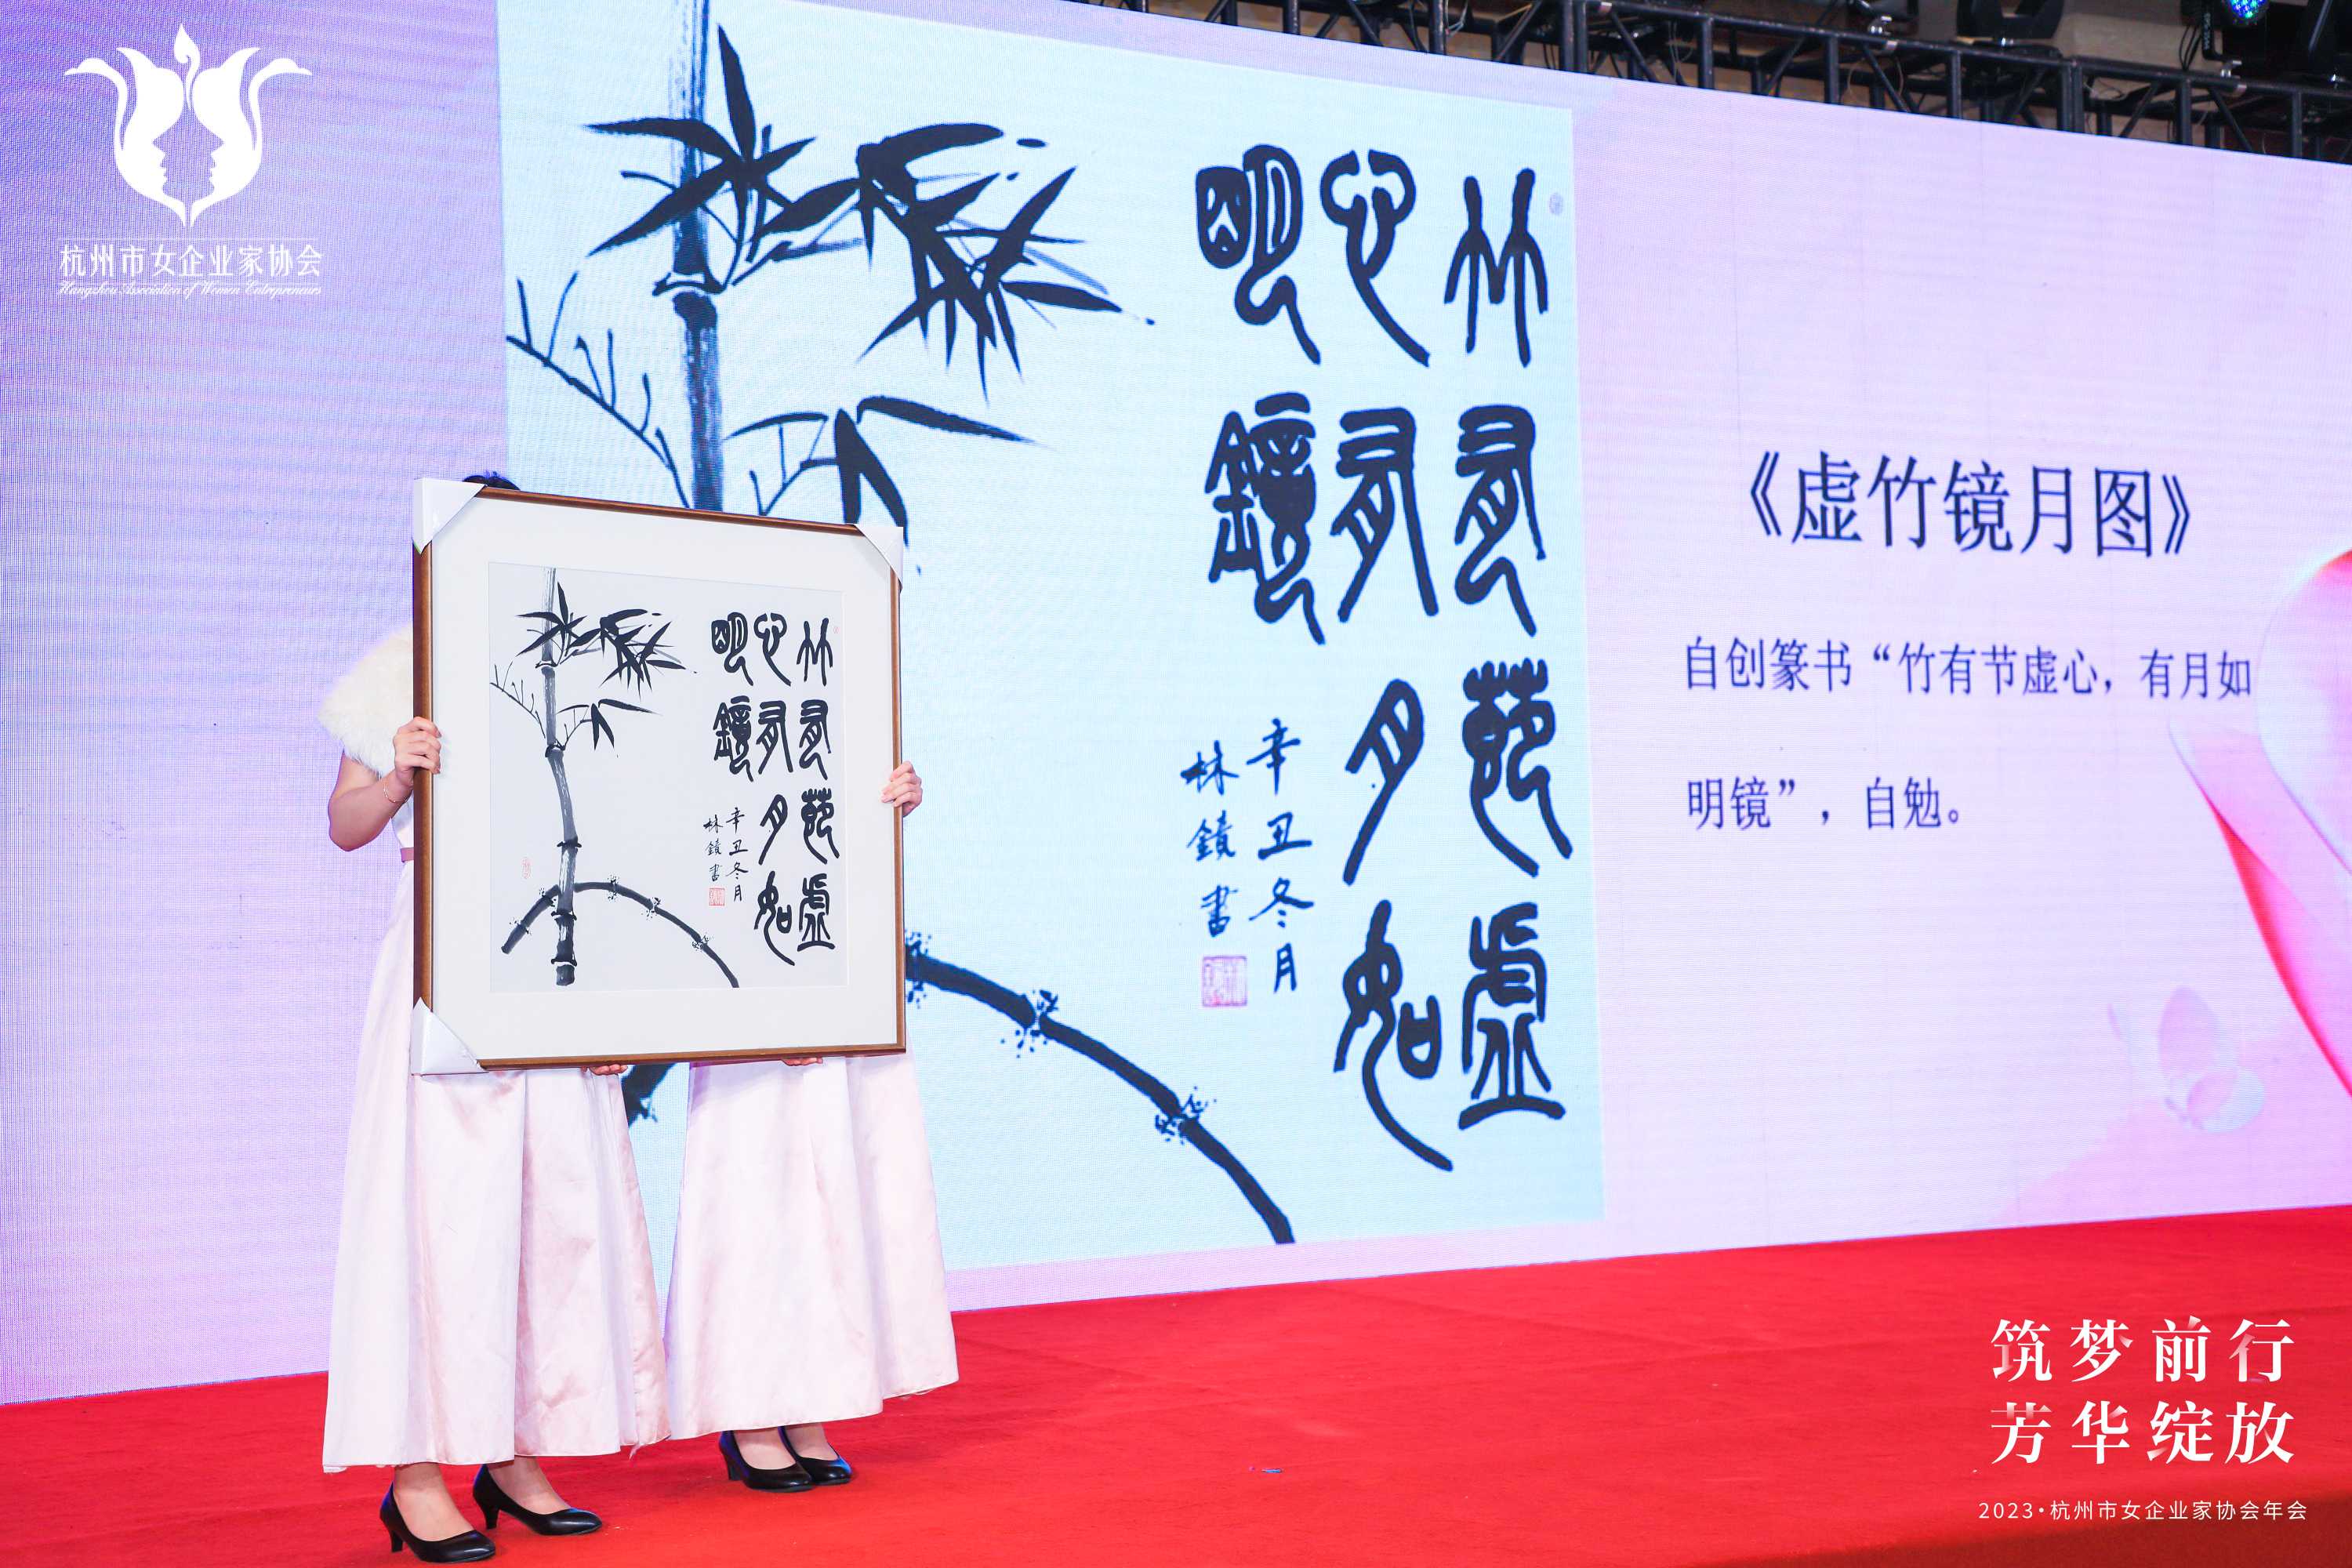 杭州市女企业家协会
Hangzhou Association of Women Entrepreneurs
竹有節虛
心有月如
明鏡
辛丑冬月
林書
《虚竹镜月图》
自创篆书“竹有节虚心，有月如
明镜”，自勉。
竹有節虛
心有月如
明鏡
辛丑冬月
林書
筑梦前行
芳华绽放
2023·杭州市女企业家协会年会